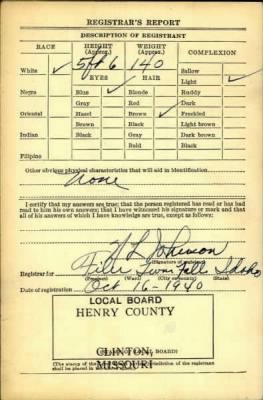 REGISTRAR'S REPORT
DESCRIPTION OF REGISTRANT
RACE HEIGHT (Approx.) WEIGHT (Approx.) COMPLEXION
5ft 6 140
White ✓ Sallow
EYES HAIR Light ✓
Negro Blue ✓ Blonde Ruddy
Gray Red Dark
Oriental Hazel Brown ✓ Freckled
Brown Black Light brown
Indian Black Gray Dark brown
Bald Black
Filipino
Other obvious physical characteristics that will aid in identification
None
I certify that my answers are true; that the person registered has read or has had read to him his own answers; that I have witnessed his signature or mark and that all of his answers of which I have knowledge are true, except as follows:
L Johnson
(Signature of registrar)
Registrar for Filer Twin Falls Idaho
(Precinct) (Ward) (City or county) (State)
Date of registration Oct 16-1940
LOCAL BOARD
HENRY COUNTY
CLINTON,
MISSOURI
(The stamp of the of the registrant shall be placed in the